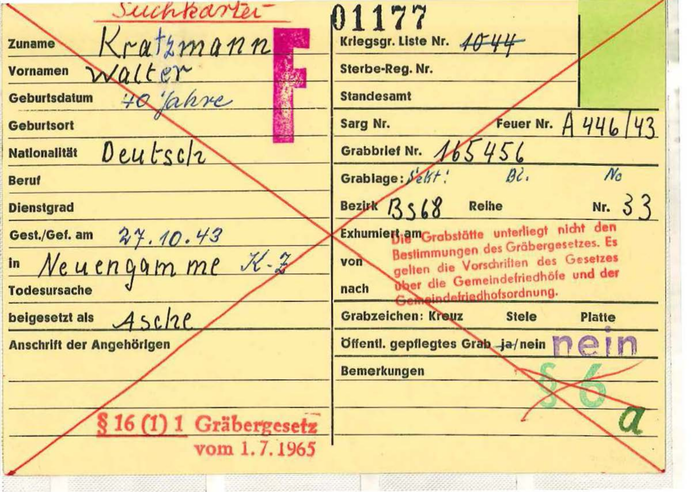 Suchkartei
01177
Zuname Kratzmann
Vornamen Walter
Geburtsdatum 40 Jahre
Geburtsort
Nationalität Deutsch
Beruf
Dienstgrad
Gest./Gef. am 27.10.43
in Neuengamme K-Z
Todesursache
beigesetzt als Asche
Anschrift der Angehörigen
§ 16 (1) 1 Gräbergesetz
vom 1.7.1965
F
Kriegsgr. Liste Nr. 1044
Sterbe-Reg. Nr.
Standesamt
Sarg Nr. Feuer Nr. A 446/43
Grabbrief Nr. 165456
Grablage: Bl. No
Bezirk Bs68 Reihe Nr. 33
Exhumiert am
von
nach
Die Grabstätte unterliegt nicht den
Bestimmungen des Gräbergesetzes. Es
gelten die Vorschriften des Gesetzes
über die Gemeindefriedhöfe und der
Gemeindefriedhofsordnung.
Grabzeichen: Kreuz Stele Platte
Öffentl. gepflegtes Grab ja/nein nein
Bemerkungen
§ 6
a